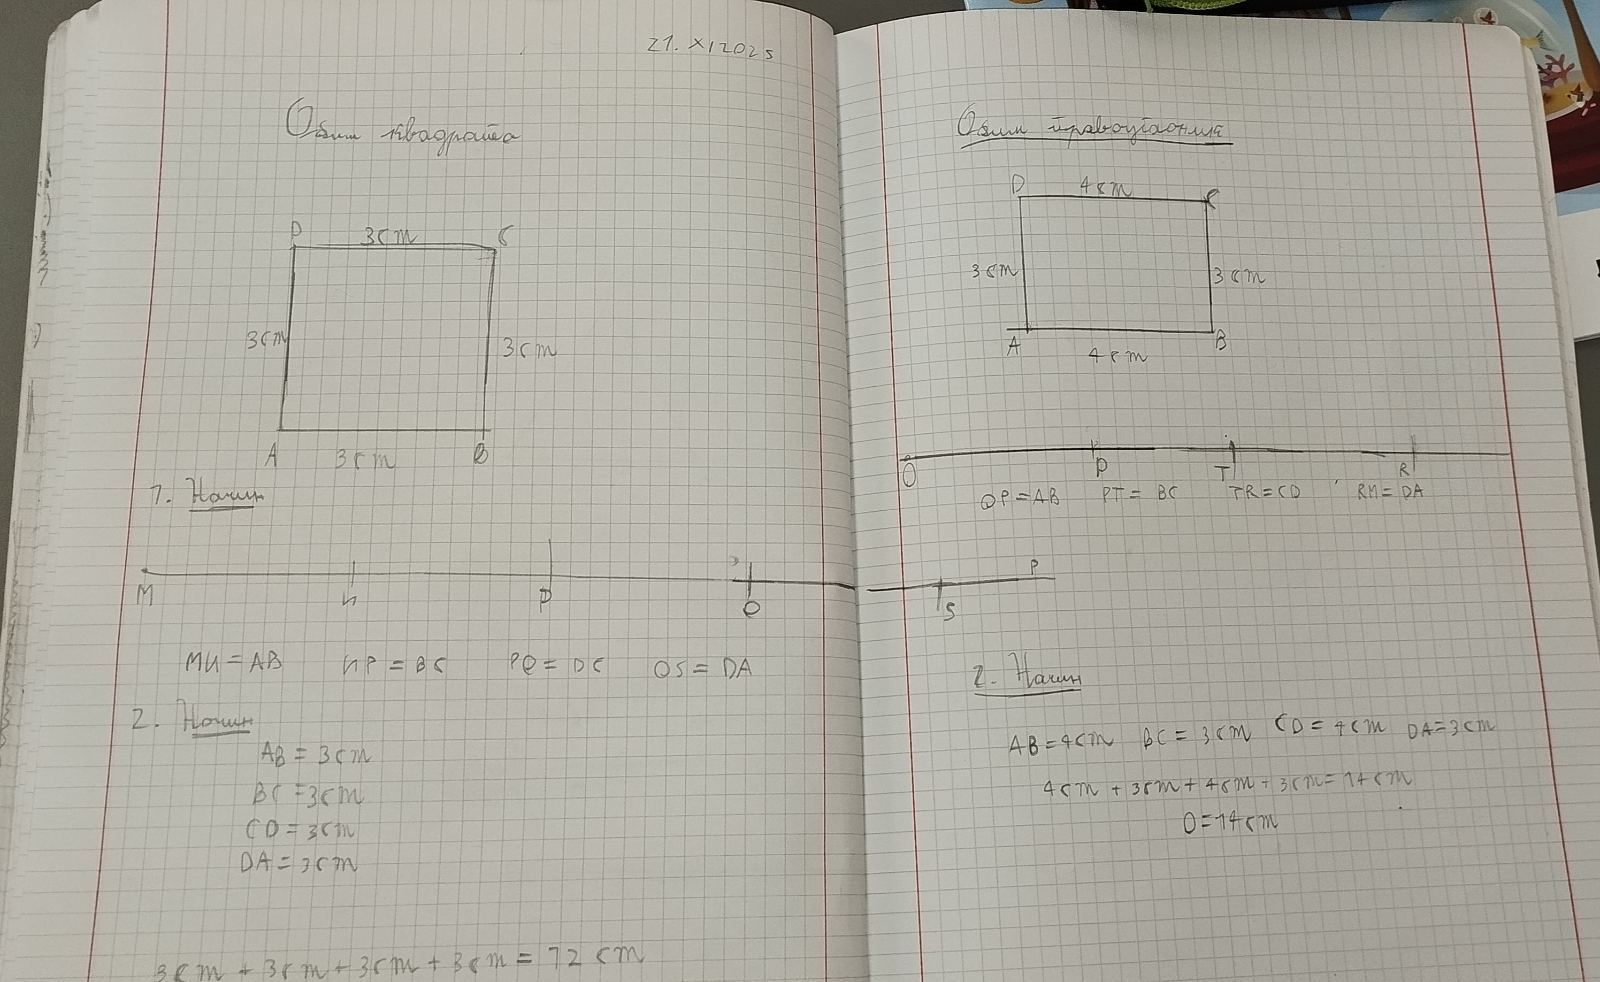 21. XI 2025
Обим квадрата
D 3cm C
3cm
3cm
A 3cm B
1. Начин
M N P Q S P
MN = AB NP = BC PQ = DC QS = DA
2. Начин
AB = 3cm
BC = 3cm
CD = 3cm
DA = 3cm
3cm + 3cm + 3cm + 3cm = 12 cm
Обим правоугаоника
D 4cm C
3cm 3cm
A 4cm B
O P T R
OP = AB PT = BC TR = CD RM = DA
2. Начин
AB = 4cm BC = 3cm CD = 4cm DA = 3cm
4cm + 3cm + 4cm + 3cm = 14cm
O = 14cm